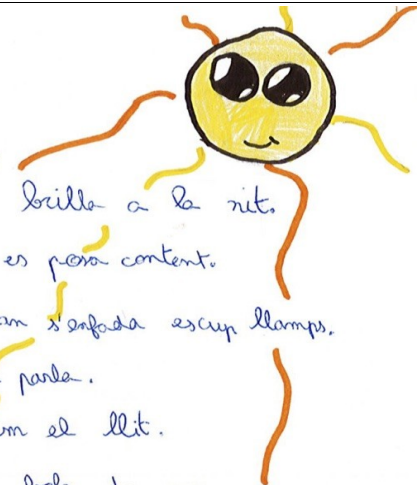 brilla a la nit.
es posa content.
s'enfada escup llamps.
parla.
el llit.